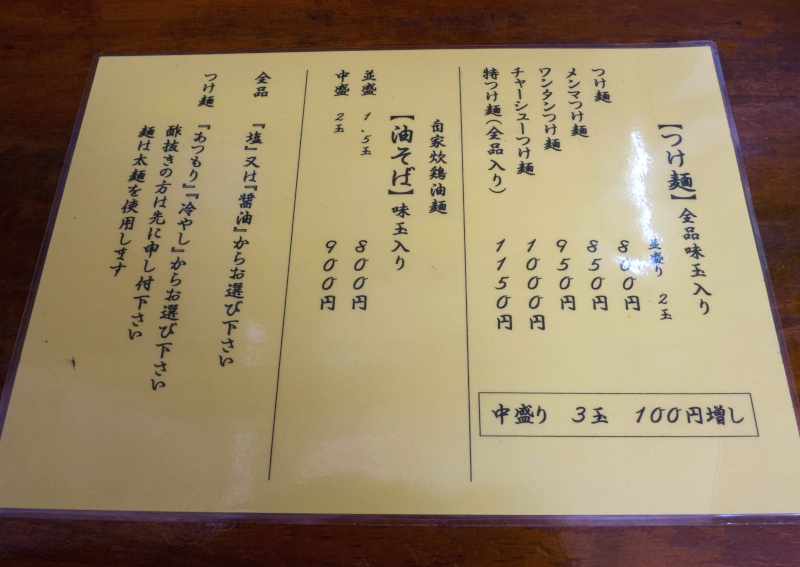 【つけ麺】全品味玉入り
並盛り 2玉
つけ麺 800円
メンマつけ麺 850円
ワンタンつけ麺 950円
チャーシューつけ麺 1000円
特つけ麺(全品入り) 1150円
中盛り 3玉 100円増し
自家炊鶏油麺
【油そば】味玉入り
並盛 1.5玉 800円
中盛 2玉 900円
全品 『塩』又は『醤油』からお選び下さい
つけ麺 『あつもり』『冷やし』からお選び下さい
酢抜きの方は先に申し付下さい
麺は太麺を使用します